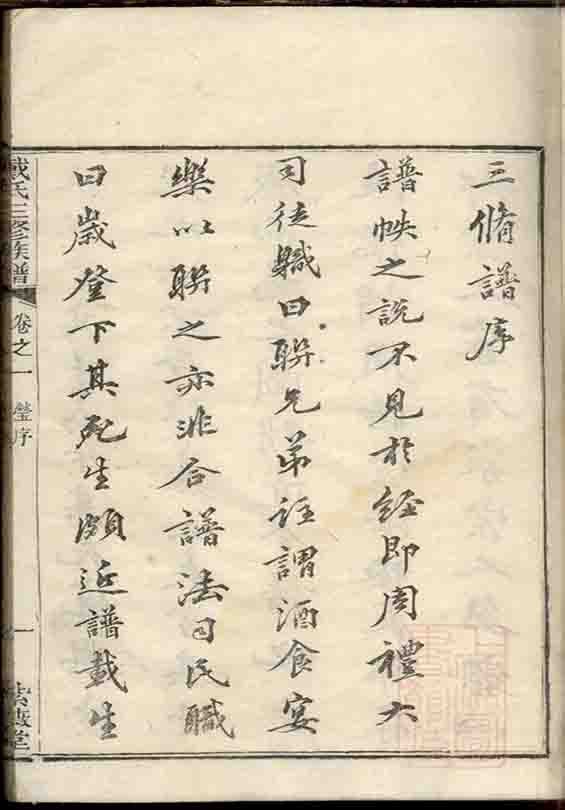 三脩譜序
譜帙之說不見於經即周禮大
司徒職曰聯兄弟註謂酒食宴
樂以聯之亦非合譜法司民職
曰歲登下其死生頗近譜載生
戴氏三修族譜
卷之一
瑩序
一
紫薇堂